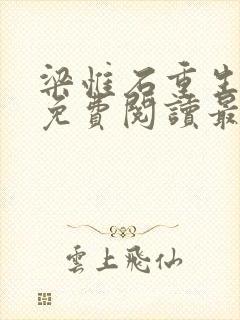 梁惟石重生
免費閱讀最
雲上飛仙